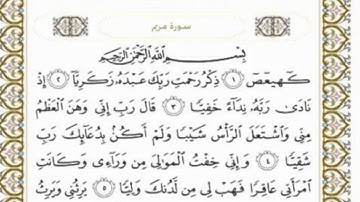 سورة مريم
بِسْمِ اللَّهِ الرَّحْمَٰنِ الرَّحِيمِ
كٓهيعٓصٓ ١ ذِكْرُ رَحْمَتِ رَبِّكَ عَبْدَهُۥ زَكَرِيَّآ ٢ إِذْ
نَادَىٰ رَبَّهُۥ نِدَآءً خَفِيًّا ٣ قَالَ رَبِّ إِنِّى وَهَنَ الْعَظْمُ
مِنِّى وَاشْتَعَلَ الرَّأْسُ شَيْبًا وَلَمْ أَكُنۢ بِدُعَآئِكَ رَبِّ
شَقِيًّا ٤ وَإِنِّى خِفْتُ الْمَوَٰلِىَ مِن وَرَآءِى وَكَانَتِ
امْرَأَتِى عَاقِرًا فَهَبْ لِى مِن لَّدُنكَ وَلِيًّا ٥ يَرِثُنِى وَيَرِثُ